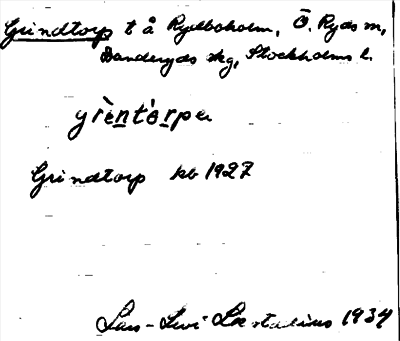 Grindtorp t å Rydboholm, Ö. Ryds sn,
Danderyds skg, Stockholms l.
grènto̕rpa
Grindtorp kb 1927
Lars-Levi Læstadius 1934